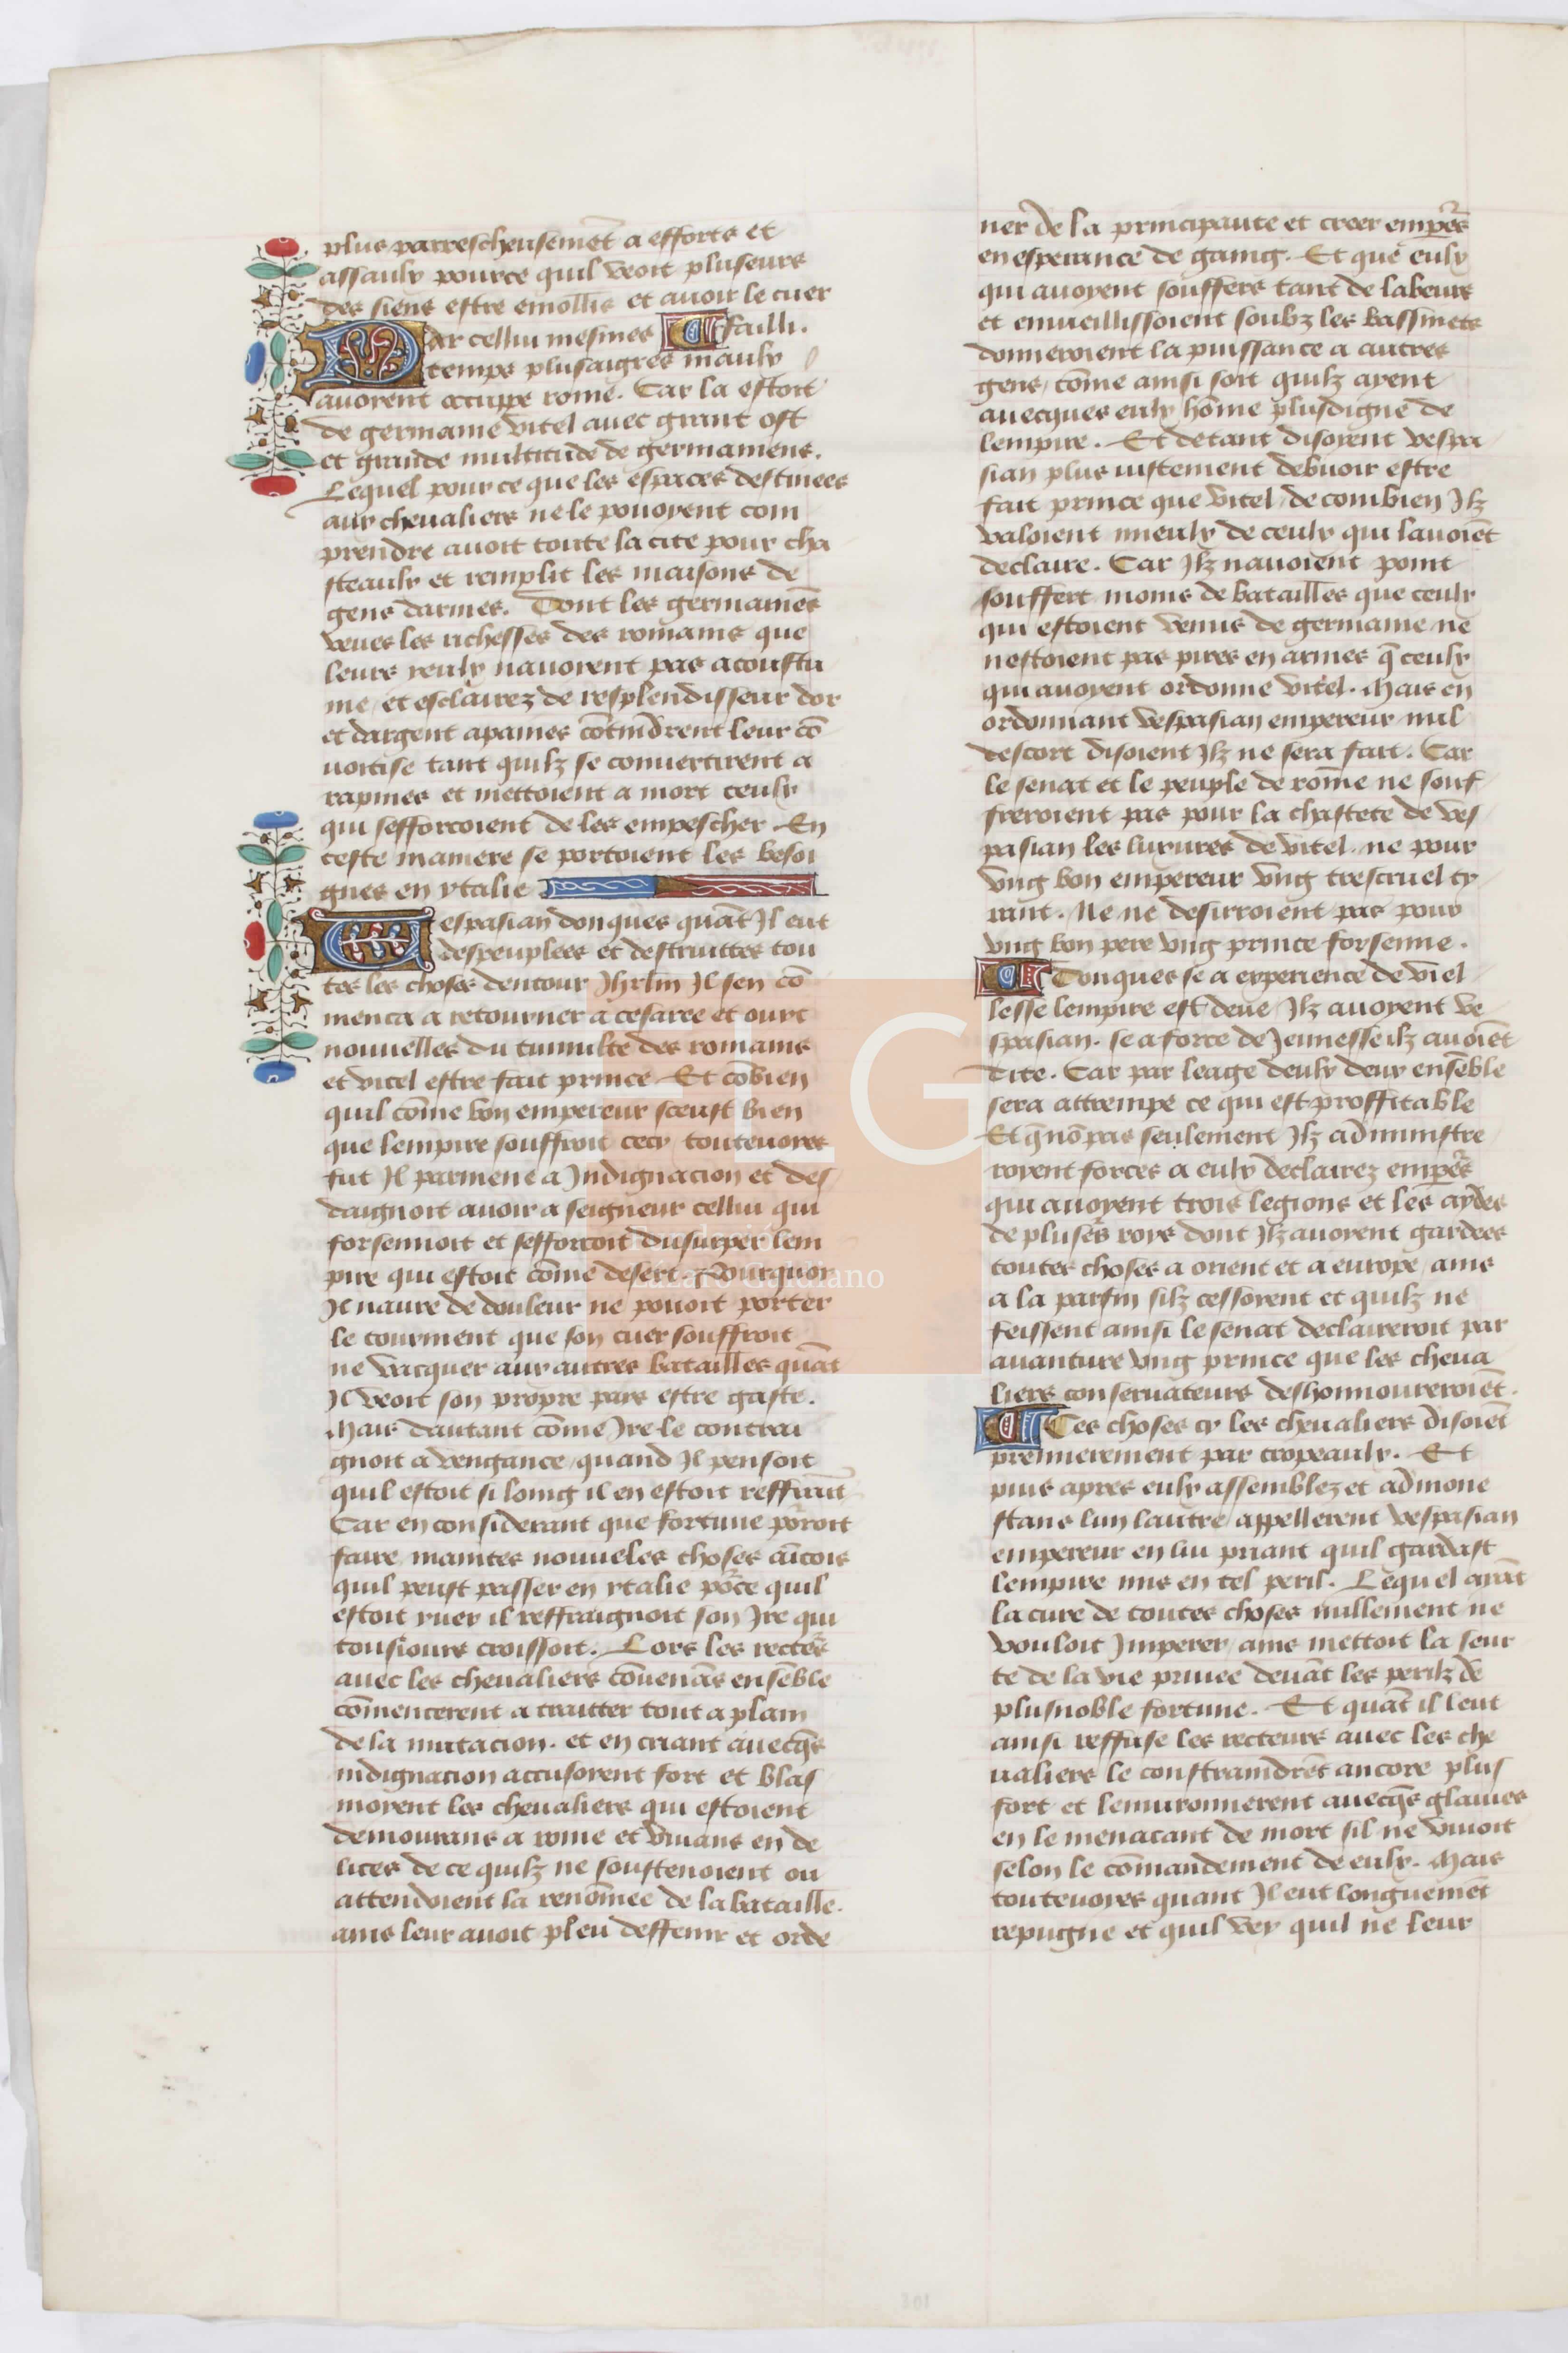 plus parrescheusemēt a effors et
assaulx pource quil veoit pluseurs
des siens estre emollis et auoir le cuer
failli.
Par cellui mesmes
temps plusaigres maulx
auoyent occupe rome. Car la estoit
de germanie vitel auec grant ost
et grande multitude de germaniens.
Lequel pour ce que les espaces destinees
aux cheualiers ne le pouoyent com
prendre auoit toute la cite pour cha
steaulx et remplit les maisons de
gens darmes. Dont les germaniēs
veues les richesses des romains que
leurs yeulx nauoyent pas acoustu
me, et esclairez de resplendisseur dor
et dargent apaines cōtindrent leur cō
uoitise tant quilz se conuertirent a
rapines et mettoient a mort ceulx
qui sefforcoient de les empescher En
ceste maniere se portoient les besoi
gnes en ytalie
Vespasian donques quāt Il eut
despeuplees et destruittes tou
tes les choses dentour Jhrlm Il sen cō
menca a retourner a cesaree et ouyt
nouuelles du tumulte des romains
et vitel estre fait prince. Et cōbien
quil cōme bon empereur sceust bien
que lempire souffroit cecy touteuoyes
fut Il parmene a Indignacion et des
daignoit auoir a seigneur cellui qui
forsennoit et sefforcoit dusurper lem
pire qui estoit cōme desert. Pourquoy
Il naure de douleur ne pouoit porter
le tourment que son cuer souffroit
ne vacquer aux autres batailles quāt
Il veoit son propre pays estre gaste.
Mais dautant cōme Ire le contrai
gnoit a vengance, quand Il pensoit
quil estoit si loing il en estoit reffraīt
Car en considerant que fortune porroit
faire maintes nouueles choses aīcois
quil peust passer en ytalie porce quil
estoit yuer il reffraignoit son Ire qui
tousiours croissoit. Lors les recteurs
auec les cheualiers cōuenās ensēble
cōmencerent a traitter tout a plain
de la mutacion. et en criant auecqs
indignacion accusoyent fort et blas
moyent les cheualiers qui estoient
demourans a rome et viuans en de
lices de ce quilz ne soustenoient ou
attendoient la renōmee de la bataille.
ains leur auoit pleu deffenir et orde
ner de la principaute et creer emper̄s
en esperance de gaing. Et que eulx
qui auoyent souffers tant de labeurs
et enuieillissoient soubz les bassinets
donneroient la puissance a autres
gens, cōme ainsi soit quilz ayent
auecques eulx hōme plusdigne de
lempire. Et detant disoyent vespa
sian plus iustement debuoir estre
fait prince que vitel, de combien Ilz
valoient mieulx de ceulx qui lauoiēt
declaire. Car Ilz nauoient point
souffert moins de batailles que ceulx
qui estoient venus de germanie ne
nestoient pas pires en armes q̄ ceulx
qui auoyent ordonne vitel. Mais en
ordonnant vespasian empereur nul
descort disoient Ilz ne sera fait. Car
le senat et le peuple de rome ne souf
freroient pas pour la chastete de ves
pasian les luxures de vitel. ne pour
vng bon empereur vng trescruel ty
rant. Ne ne desirroient pas pour
vng bon pere vng prince forsenne.
Donques se a experience de viel
lesse lempire est deue, Ilz auoyent ve
spasian. se a force de Jennesse ilz auoiēt
tite. Car par leage deulx deux ensēble
sera attrempe ce qui est proffitable
Et q̄ nō pas seulement Ilz administre
royent forces a eulx declairez emper̄s
qui auoyent trois legions et les aydes
de pluser̄s roys dont Ilz auoyent gardees
toutes choses a orient et a europe, ains
a la parfin silz cessoyent et quilz ne
feissent ainsi le senat declaireroit par
auanture vng prince que les cheua
liers conseruateurs deshonnoureroiēt.
Ces choses cy les cheualiers disoiēt
premierement par tropeaulx. Et
puis apres eulx assemblez et admone
stans lun lautre, appellerent vespasian
empereur en lui priant quil gardast
lempire mis en tel peril. Lequel ayāt
la cure de toutes choses nullement ne
vouloit Imperer, ains mettoit la seur
te de la vie priuee deuāt les perilz de
plusnoble fortune. Et quāt il leut
ainsi reffuse les recteurs auec les che
ualiers le constraindrēt ancore plus
fort et lenuironnerent auecqs glaiues
en le menacant de mort sil ne viuoit
selon le cōmandement de eulx. Mais
touteuoyes quant Il eut longuemēt
repugne et quil vey quil ne leur